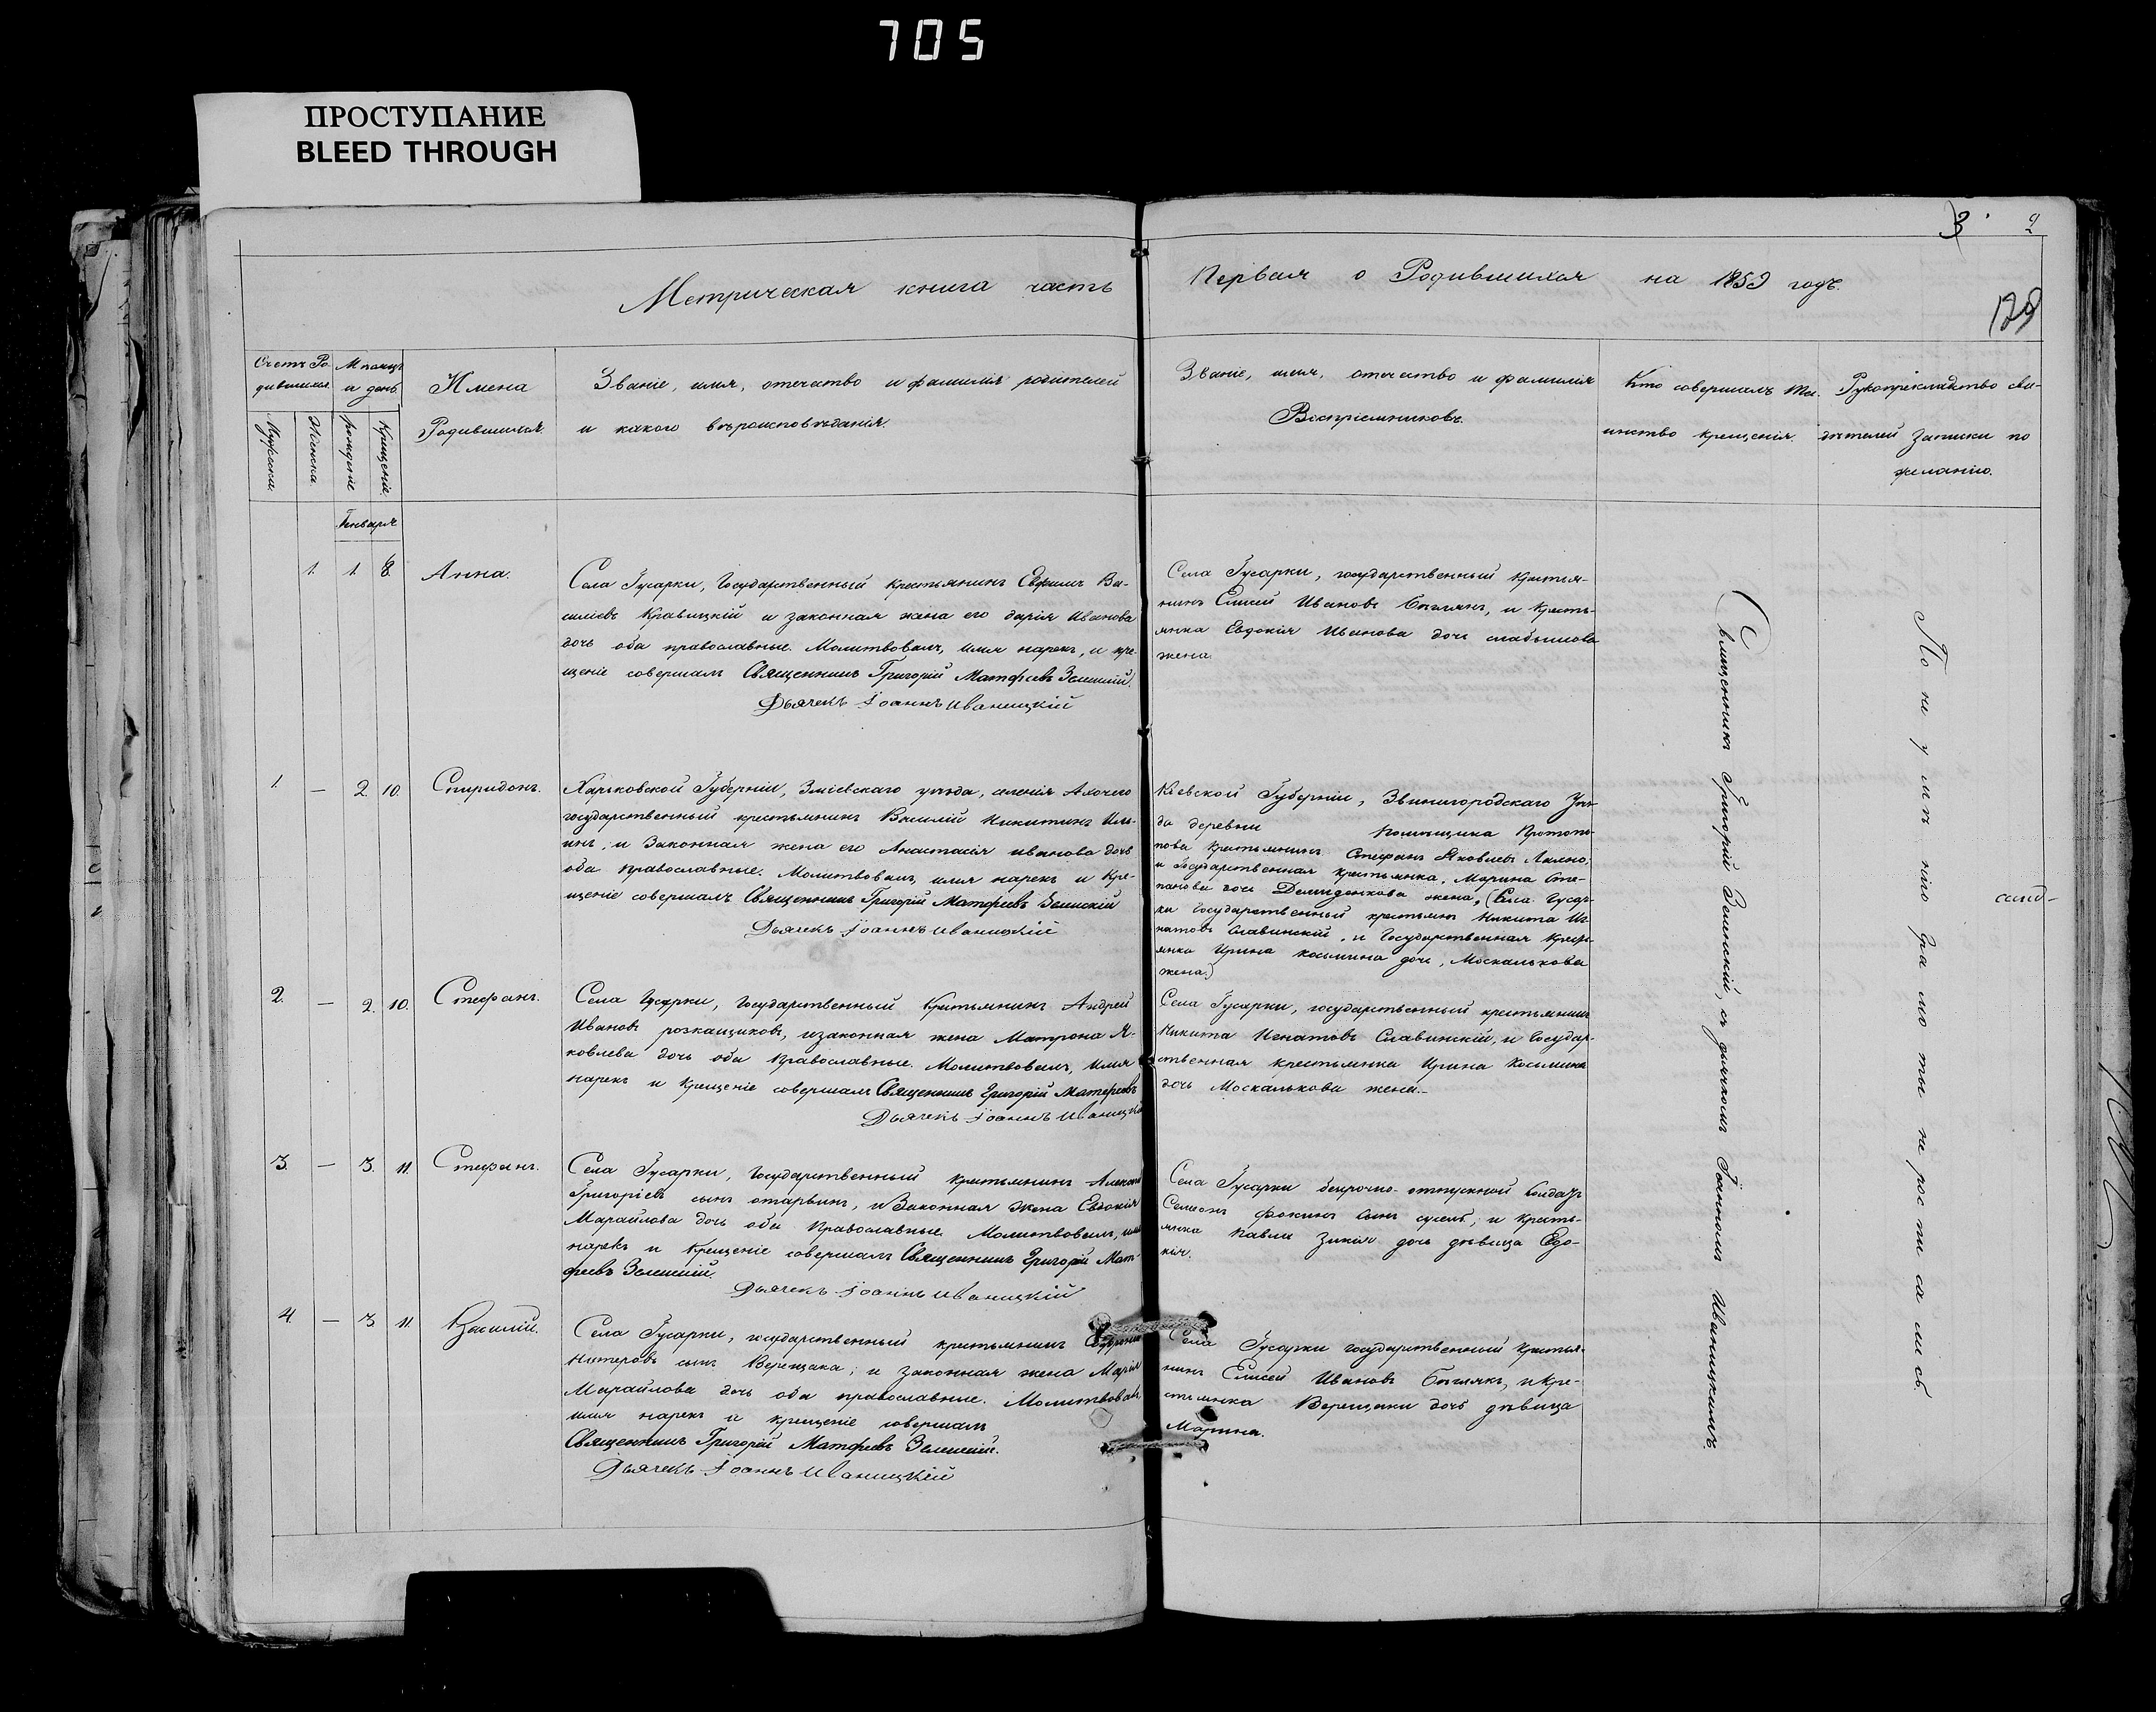 705
ПРОСТУПАНИЕ
BLEED THROUGH
3 2
Метрическая книга часть Первая о Родившихся на 1859 годъ.
129
Счетъ Ро-
дившихся.
Мужеска.
Женска.
Мѣсяцъ
и день.
рожденіе
Крещеніе.
Имена
Родившихся.
Званіе, имя, отечество и фамилія родителей
и какого вѣроисповѣданія.
Званіе, имя, отечество и фамилія
Воспріемниковъ.
Кто совершалъ Та-
инство крещенія.
Рукоприкладство сви-
дѣтелей записки по
желанію.
Января
1. 1. 8. Анна.
Села Гусарки, Государственный Крестьянинъ Евфимъ Ва-
силіевъ Кравицкій и законная жена его дарія Иванова
дочь оба православные. Молитвовалъ, имя нарекъ, и кре-
щеніе совершалъ Священникъ Григорій Матфеевъ Зеленскій.
Дьячекъ Іоаннъ Иваницкій
Села Гусарки, государственный крестья-
нинъ Елисей Ивановъ Бѣглякъ, и кресть-
янка Евдокія Иванова дочь слабышова
жена.
1. — 2. 10. Спиридонъ.
Харьковской Губерніи, Зміевскаго уѣзда, селенія Алочего
государственный крестьянинъ Василій Никитинъ Иль-
инъ, и Законная жена его Анастасія иванова дочь
оба православные. Молитвовалъ, имя нарекъ и Кре-
щеніе совершалъ Священникъ Григорій Матфеевъ Зеленскій
Дьячекъ Іоаннъ Иваницкій
Кіевской Губерніи, Звинигородскаго Уѣз-
да деревни Помѣщика Протопо-
пова крестьянинъ Стефанъ Яковлевъ Ляхно,
и Государственная крестьянка, Марина Сте-
панова дочь Демиденкова жена, (Села Гусар-
ки Государственный крестьянъ Никита Иг-
натовъ Славинскій, и Государственная Кресть-
янка Ирина косьмина дочь, Москалькова
жена.)
2. — 2. 10. Стефанъ.
Села Гусарки, Государственный Крестьянинъ Андрей
Ивановъ розкащиковъ, изаконная жена Матрона Я-
ковлева дочь оба Православные. Молитвовалъ, Имя
нарекъ и Крещеніе совершалъ Священникъ Григорій Матфеевъ
Дьячекъ Іоаннъ Иваницкі
Села Гусарки, государственный крестьянинъ
Никита Игнатовъ Славинскій, и Государ-
ственная крестьянка Ирина Косьмина
дочь Москалькова жена.
3. — 3. 11. Стефанъ.
Села Гусарки, Государственный крестьянинъ
Григоріевъ сынъ и Законная жена Евдокія
дочь оба Православные Молитвовалъ, имя
нарекъ и Крещеніе совершалъ Священникъ Григорій Мат-
феевъ Зеленскій.
Дьячекъ Іоаннъ Иваницкій
Села Гусарки безсрочно-отпускной Солдатъ
Семеонъ Фокинъ Сынъ и кресть-
янка Павла дочь дѣвица Евдо-
кія.
4. — 3. 11 Василій.
Села Гусарки, государственный крестьянинъ
сынъ Верещака; и законная жена Марія
дочь оба православные. Молитвовалъ
имя нарекъ и крещеніе совершалъ
Священникъ Григорій Матфеевъ Зеленскій.
Дьячекъ Іоаннъ Иваницкій
Села Гусарки государственный крестья-
нинъ Елисей Ивановъ Бѣглякъ, и кре-
стьянка Верещаки дочь дѣвица
Марина.
Священникъ Григорій Зеленскій, съ дьячкомъ Іоанномъ Иваницкимъ.
По неумѣнію грамоты не росписались.